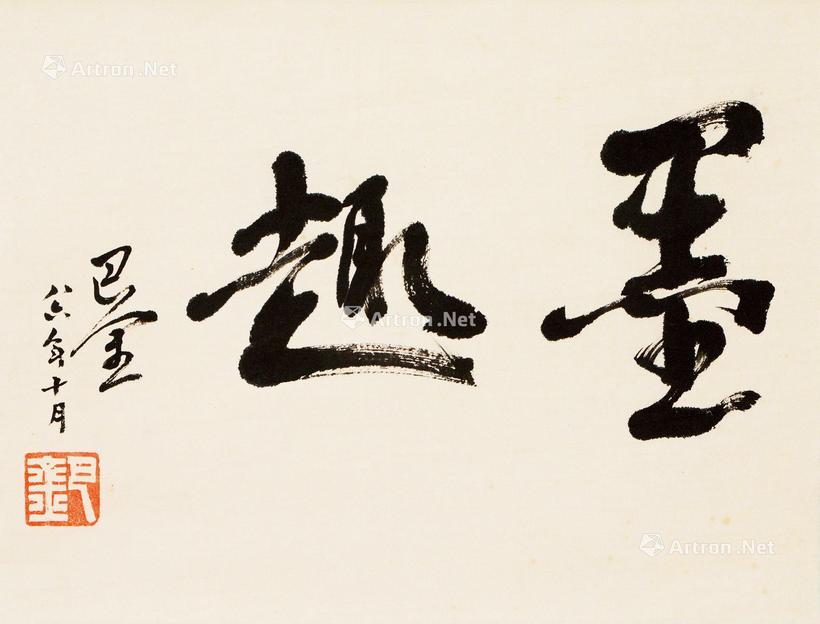 墨趣
巴金
八六年十月
Artron.Net
Artron.Net
Artron.Net